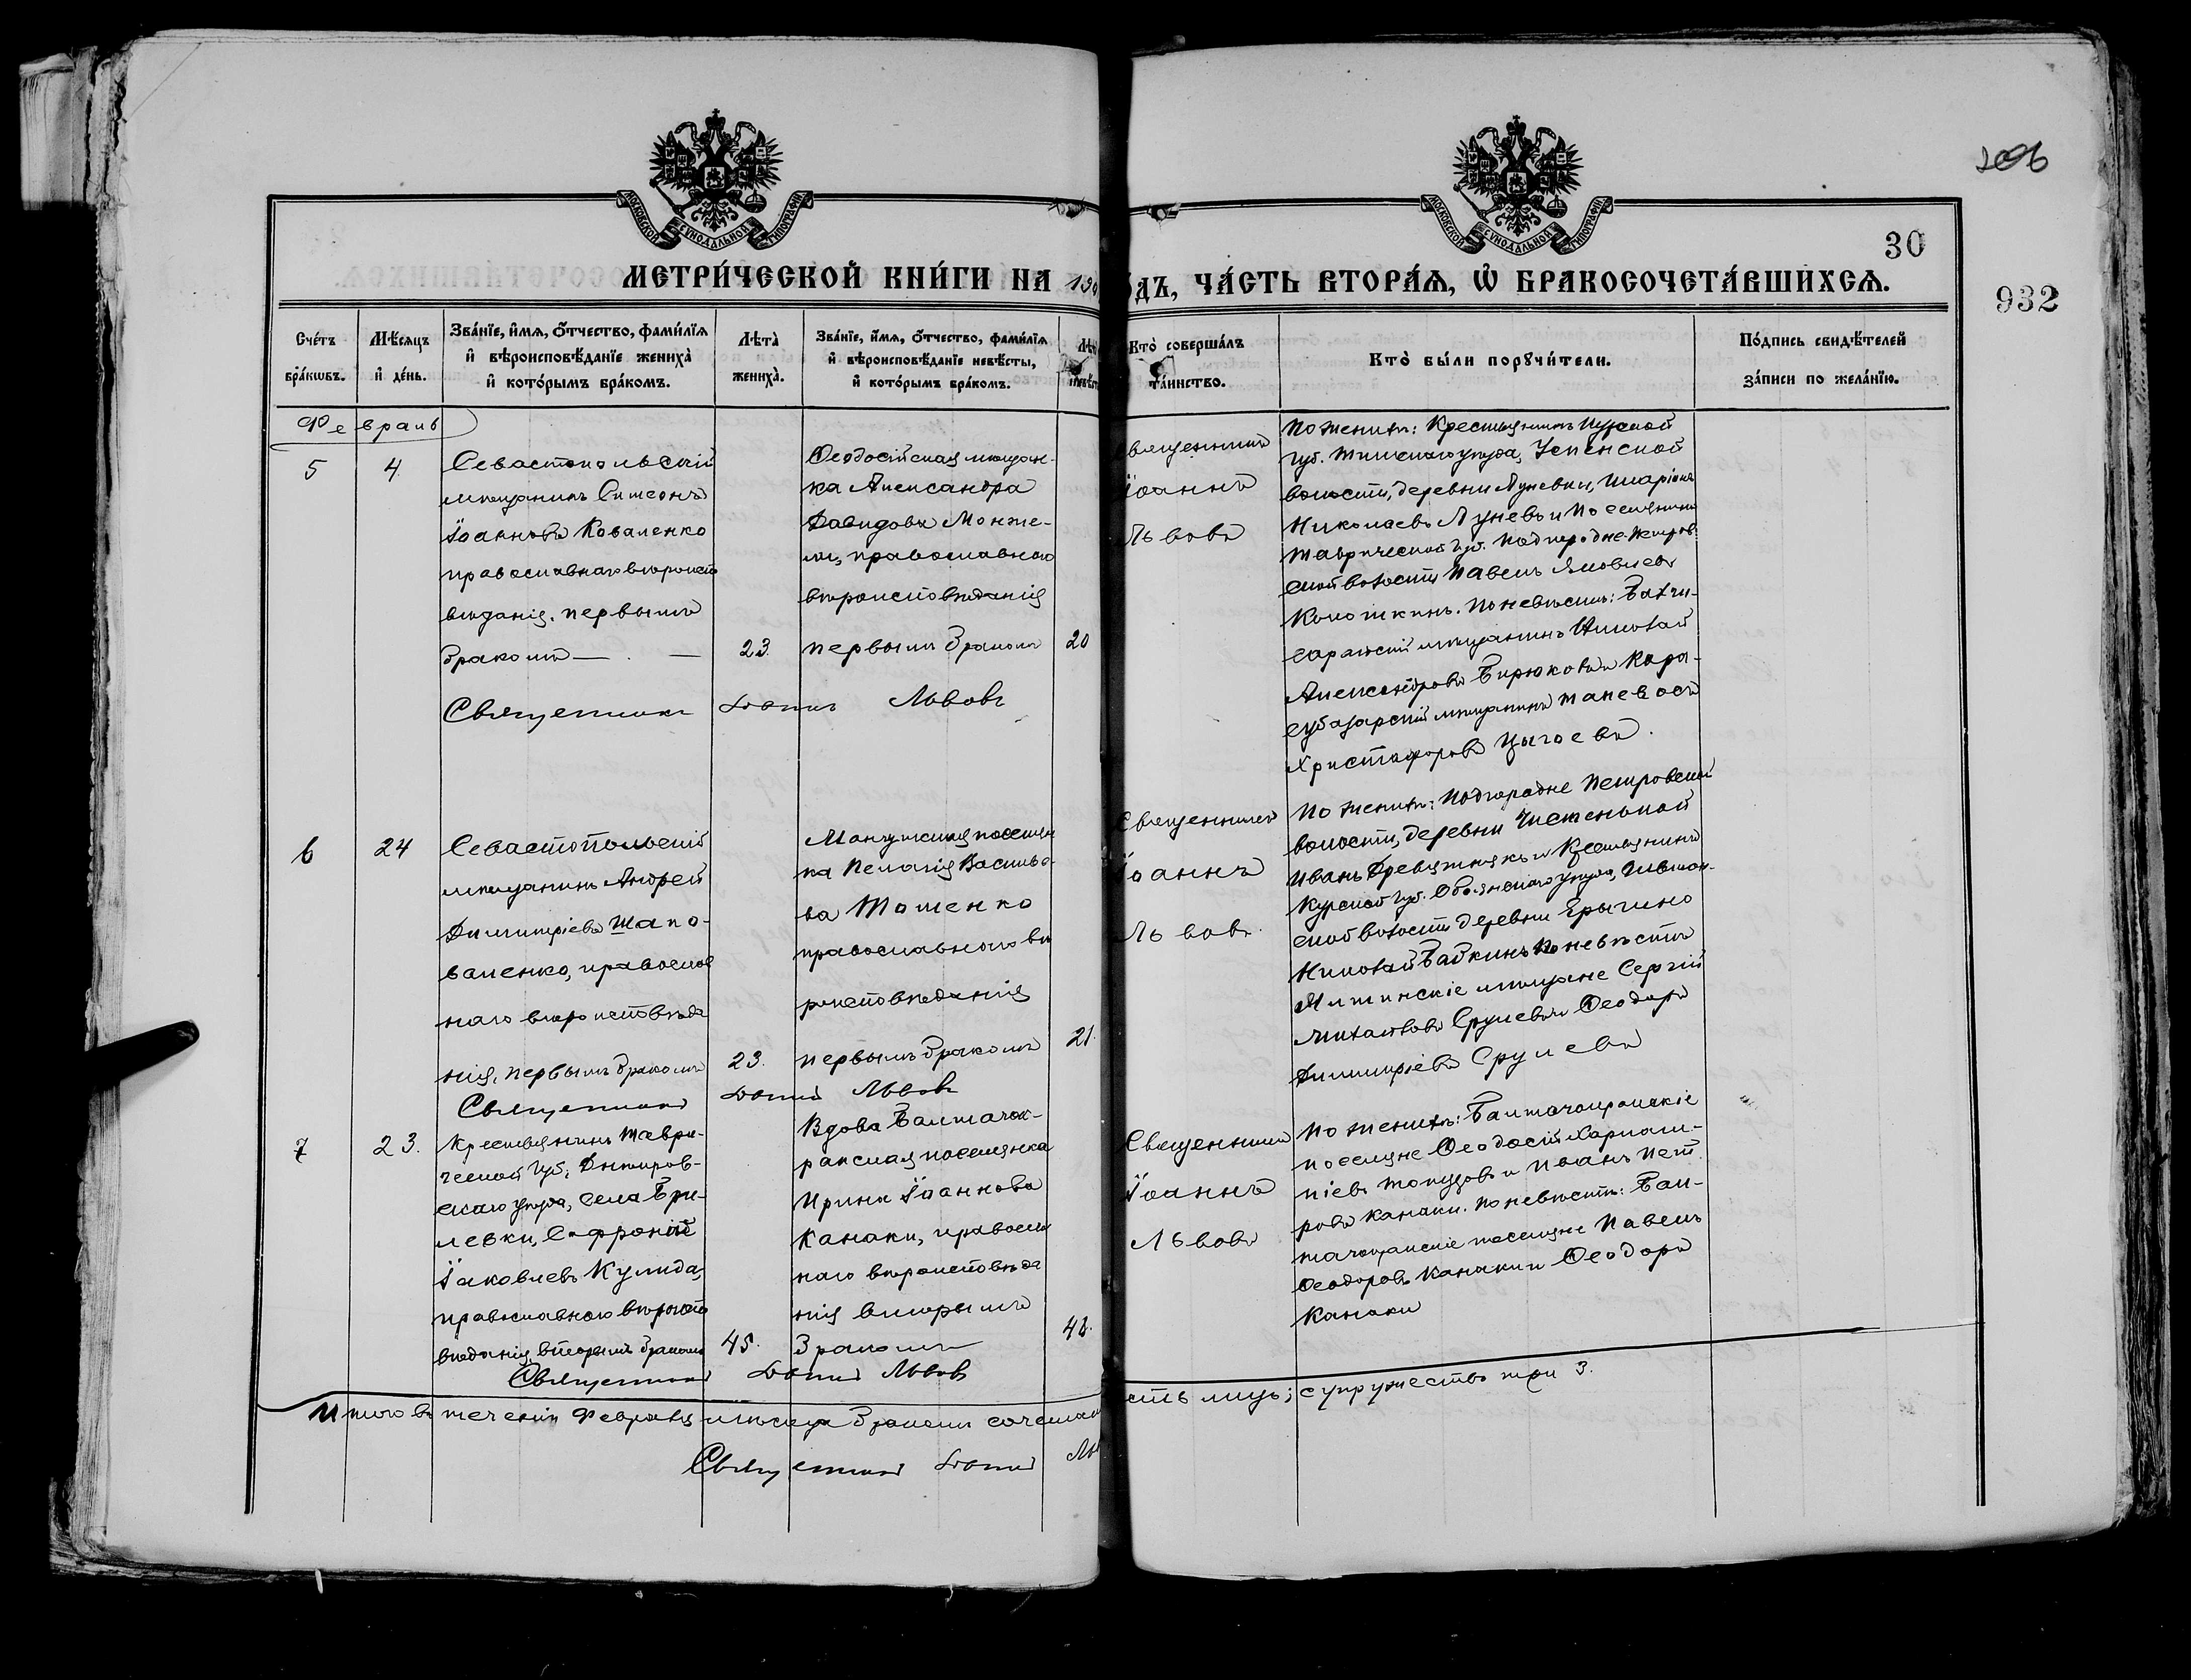 206
30
932
МОСКОВСКОЙ СѴНОДАЛЬНОЙ ТИПОГРАФІИ
МОСКОВСКОЙ СѴНОДАЛЬНОЙ ТИПОГРАФІИ
МЕТРИ́ЧЕСКОЙ КНИ́ГИ НА 190
ОДЪ, ЧА́СТЬ ВТОРА́Ѧ, Ѽ БРАКОСОЧЕТА́ВШИХСѦ.
Счéтъ брáкѡвъ.
Мѣ́сяцъ и҆ дéнь.
Звáнїе, и҆́мѧ, ѻ҆́тчество, фами́лїѧ
и҆ вѣроисповѣ́данїе женихà
и҆ кото́рымъ брáкомъ.
Лѣ́та женихà.
Звáнїе, и҆́мѧ, ѻ҆́тчество, фами́лїѧ
и҆ вѣроисповѣ́данїе невѣ́сты,
и҆ кото́рымъ брáкомъ.
Ктò совершáлъ
тáинство.
Ктò бы́ли порꙋчи́тели.
Пóдпись свидѣ́телей
зáписи по желáнїю.
Февраль
5
4
Севастопольскій
мѣщанинъ Симеонъ
Іоанновъ Коваленко
православнаго вѣроиспо
вѣданія, первымъ
бракомъ
23.
Ѳеодосійская мѣщан-
ка Александра
Давидова Монже-
ли, православнаго
вѣроисповѣданія
первымъ бракомъ
20
Священникъ Іоаннъ Львовъ
вященникъ
Іоаннъ
Львовъ
По женихѣ: Крестьянинъ Курской
губ. Тимскаго уѣзда, Успенской
волости, деревни Луневки, Иларіонъ
Николаевъ Луневъ и поселянинъ
Таврической губ. Подгородне-Петров
ской волости Павелъ Яковлевъ
По невѣстѣ: Бахчи-
сарайскій мѣщанинъ Николай
Александровъ Бирюковъ и Кара-
субазарскій мѣщанинъ
Христофоровъ Цыгоевъ.
6
24
Севастопольскій
мѣщанинъ Андрей
Димитріевъ Шапо-
валенко, православ
наго вѣроисповѣда
нія, первымъ бракомъ
23.
Мангушская поселян
ка Пелагія Василье-
ва Тошенко
православнаго вѣ
роисповѣданія
первымъ бракомъ
21.
Священникъ Іоаннъ Львовъ
Священникъ
Іоаннъ
Львовъ.
По женихѣ: Подгородне Петровской
волости, деревни Чистенькой
Иванъ и Крестьянинъ
Курской губ. Обоянскаго уѣзда,
ской волости деревни Ерыгино
Николай Бабкинъ. По невѣстѣ
Ялтинскіе мѣщане Сергій
Михайловъ Срулевъ и Ѳеодоръ
Димитріевъ Срулевъ
7
23.
Крестьянинъ Таври-
ческой губ. Днѣпров-
скаго уѣзда, села Бри-
левки, Софроній
Іаковлевъ Кулида,
православнаго вѣроиспо
вѣданія, вторымъ бракомъ
45.
Вдова Балтачок-
ракская поселянка
Ирина Іоаннова
Канаки, православ
наго вѣроисповѣда
нія вторымъ
бракомъ
42.
Священникъ Іоаннъ Львовъ
Священникъ
Іоаннъ
Львовъ
По женихѣ: Балтачокракскіе
поселяне Ѳеодосій Харлам-
піевъ Топузовъ и Иванъ Пет
ровъ Канаки. По невѣстѣ: Бал-
тачокракскіе поселяне Павелъ
Ѳеодоровъ Канаки и Ѳеодоръ
Канаки
Итого въ теченіи Февраля мѣсяца бракомъ сочетал
сть лицъ; супружествъ три 3.
Священникъ Іоаннъ Ль